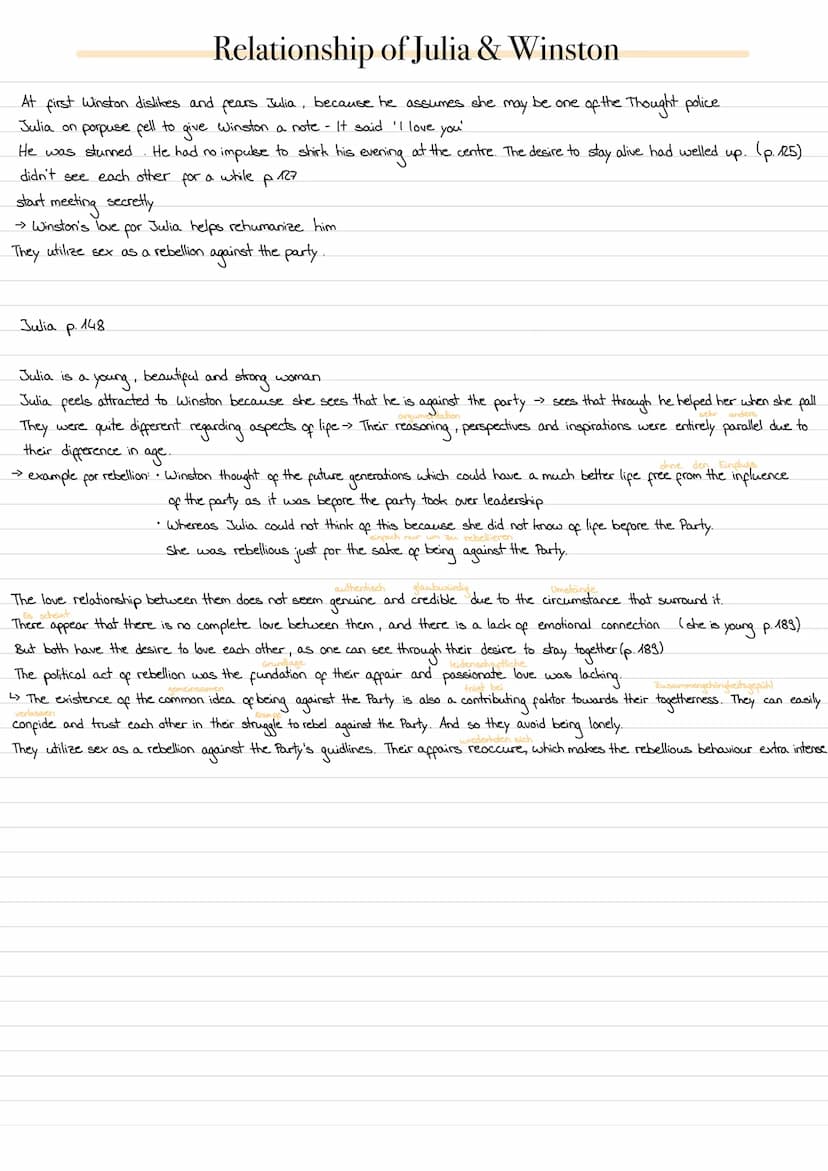 Relationship of Julia & Winston
At first Winston dislikes and fears Julia, because he assumes she may be one of the Thought police
Julia on porpuse fell to give Winston a note - It said 'I love you'
He was stunned. He had no impulse to shirk his evening at the centre. The desire to stay alive had welled up. (p.125)
didn't see each other for a while p.127
start meeting secretly
→ Winston's love for Julia helps rehumanize him
They utilize sex as a rebellion against the party.
Julia p.148
Julia is a young, beautiful and strong woman
Julia feels attracted to Winston because she sees that he is against the party → sees that through he helped her when she fall
argumentation sehr anders
They were quite different regarding aspects of life → Their reasoning, perspectives and inspirations were entirely parallel due to
their difference in age.
ohne den Einfluss
→ example for rebellion: • Winston thought of the future generations which could have a much better life free from the influence
of the party as it was before the party took over leadership
• Whereas Julia could not think of this because she did not know of life before the Party.
einfach nur um zu rebellieren
She was rebellious just for the sake of being against the Party.
authentisch glaubwürdig Umstände
The love relationship between them does not seem genuine and credible due to the circumstance that surround it.
Es scheint
There appear that there is no complete love between them, and there is a lack of emotional connection (she is young p.189)
But both have the desire to love each other, as one can see through their desire to stay together (p.189)
Grundlage leidenschaftliche
The political act of rebellion was the fundation of their affair and passionate love was lacking.
gemeinsamen trägt bei Zusammengehörigkeitsgefühl
↳ The existence of the common idea of being against the Party is also a contributing faktor towards their togetherness. They can easily
verlassen Kampf
confide and trust each other in their struggle to rebel against the Party. And so they avoid being lonely.
wiederholen sich
They utilize sex as a rebellion against the Party's guidlines. Their affairs reoccure, which makes the rebellious behaviour extra intense